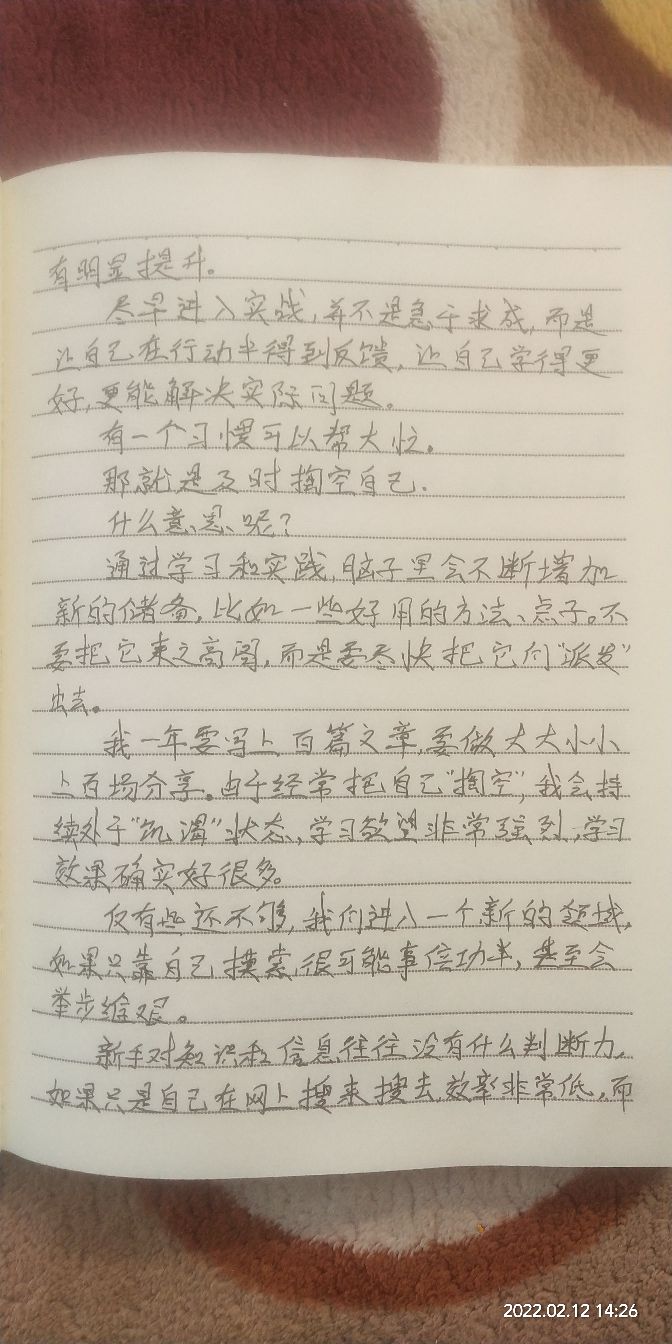 有明显提升。
尽早进入实战,并不是急于求成,而是
让自己在行动中得到反馈,让自己学得更
好,更能解决实际问题。
有一个习惯可以帮大忙。
那就是及时掏空自己.
什么意思呢?
通过学习和实践,脑子里会不断增加
新的储备,比如一些好用的方法、点子。不
要把它束之高阁,而是要尽快把它们“派发”
出去。
我一年要写上百篇文章,要做大大小小
上百场分享。由于经常把自己“掏空”,我会持
续处于“饥渴”状态,学习欲望非常强烈,学习
效果确实好很多。
仅有些还不够,我们进入一个新的领域,
如果只靠自己摸索,很可能事倍功半,甚至会
举步维艰。
新手对知识和信息往往没有什么判断力,
如果只是自己在网上搜来搜去,效率非常低,而
2022.02.12 14:26